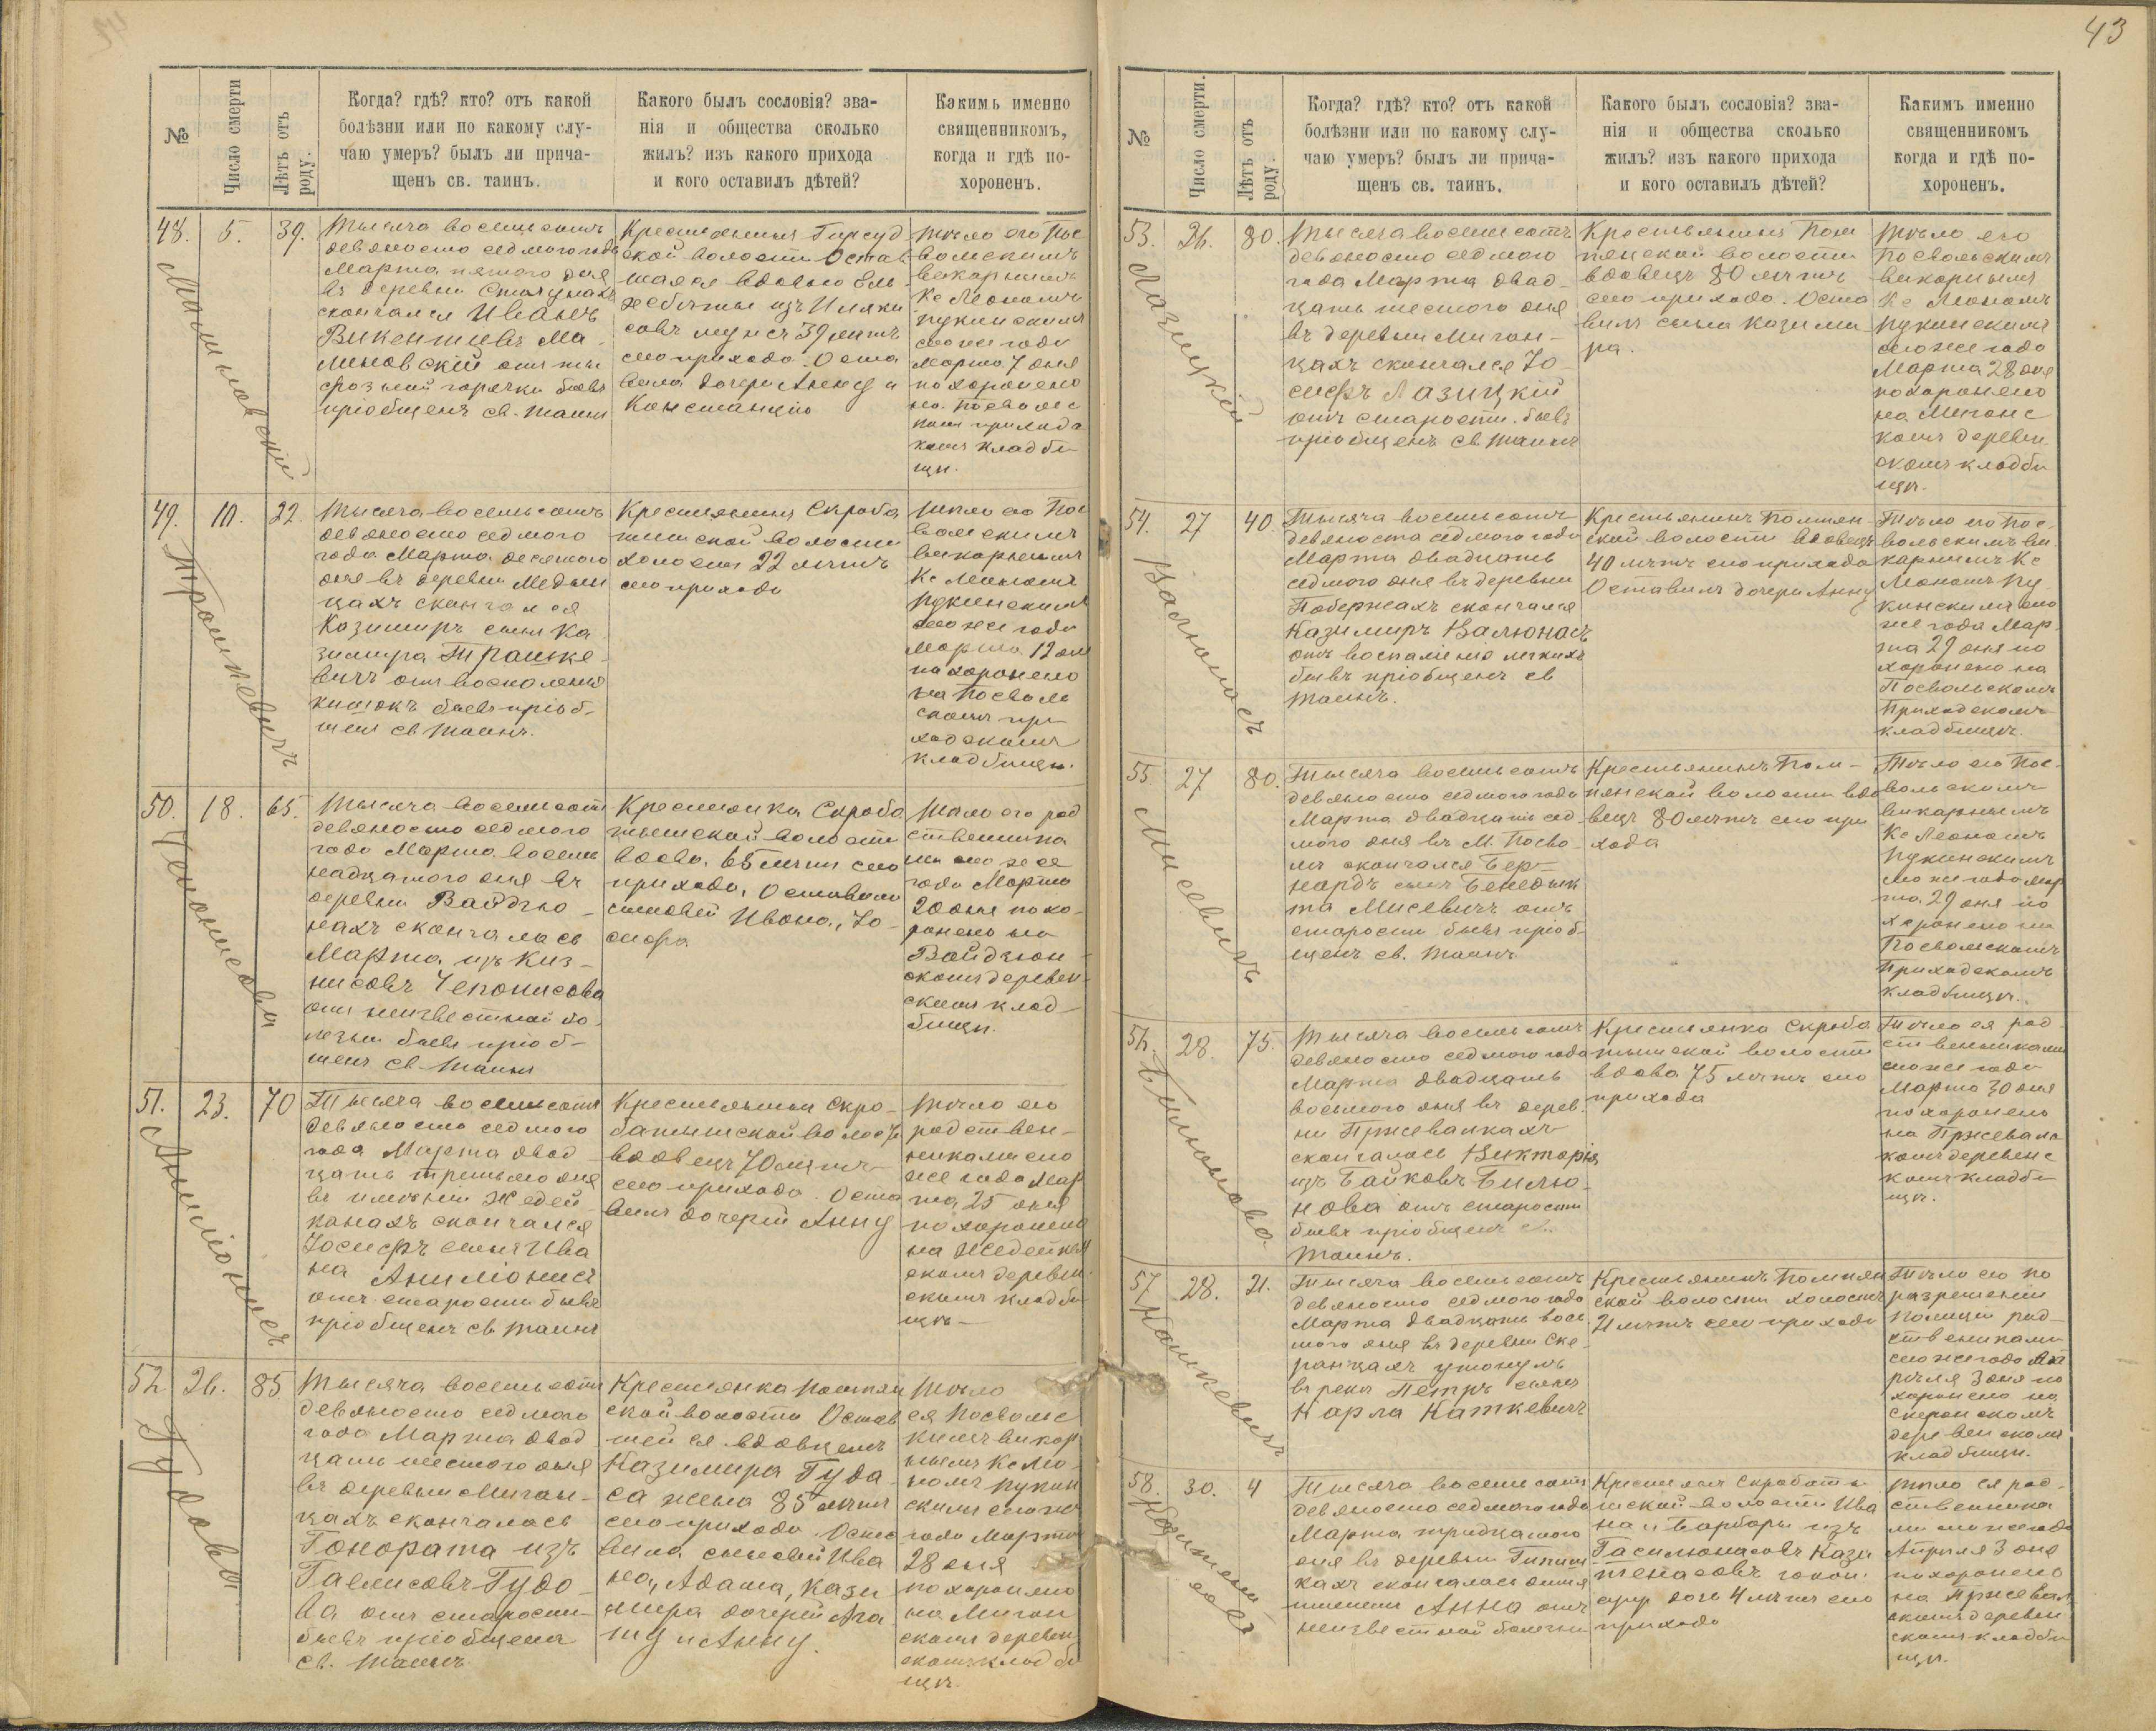 43
№
Число смерти
Лѣтъ отъ роду.
Когда? гдѣ? кто? отъ какой
болѣзни или по какому слу-
чаю умеръ? былъ ли прича-
щенъ св. таинъ.
Какого былъ сословія? зва-
нія и общества сколько
жилъ? изъ какого прихода
и кого оставилъ дѣтей?
Какимъ именно
священникомъ,
когда и гдѣ по-
хороненъ.
48.
5.
39.
Малиновскій
Тысяча восемьсотъ
девяносто седмого года
Марта пятого дня
въ деревни
скончался Иванъ
Викентіевъ Ма-
линовскій отъ ти
фозной горячки бывъ
пріобщенъ св. таинъ
Крестьянинъ
ской волости Остав
шаяся вдовою Ель
жбеты изъ
совъ мужъ 39 лѣтъ
сего прихода. Оста
вилъ дочери Анну и
Констанцію
Тѣло его Пос
вольскимъ
викарнымъ
Кс Леономъ
Пукинскимъ
сего же года
Марта 7 дня
похоронено
на Посволь
скомъ приход
комъ кладби
щѣ.
49.
10.
22.
Транкевичъ
Тысяча восемьсотъ
девяносто седмого
года Марта десятого
дня въ деревни Медин
цахъ скончался
Казимиръ сынъ Ка
зимира Транке-
вичъ отъ воспаленія
кишокъ бывъ пріоб-
щенъ св таинъ.
Крестьянинъ Скроба
тишской волости
холостъ 22 лѣтъ
сего прихода
Тѣло его Пос
вольскимъ
викарнымъ
Кс Леономъ
Пукинскимъ
сего же года
Марта 12 дня
похоронено
на Посволь
скомъ при-
ходскомъ
кладбищѣ.
50.
18.
65.
Чепонисова
Тысяча восемьсотъ
девяносто седмого
года Марта восем
надцатого дня въ
деревни Вайдзю-
нахъ скончалась
Марта изъ Киз-
нисовъ Чепонисова
отъ неизвестной бо-
лезни бывъ пріоб-
щенъ св. таинъ
Крестьянка Скроба
тышской волости
вдова 65 лѣтъ сего
прихода, Оставила
сыновей Ивана, Іо-
сифа
Тѣло его род
ственника
ми сего же
года Марта
20 дня похо-
ронено на
Вайдзюн-
скомъ деревен-
скомъ клад-
бищѣ.
51.
23.
70
Анилiонисъ
Тысяча восемьсотъ
девяносто седмого
года Марта двад-
цать третьего дня
въ имѣніи Жедей-
канахъ скончался
Іосифъ сынъ Ива
на Анилiонисъ
отъ старости бывъ
пріобщенъ св таинъ
Крестьянинъ Скро-
батышской волости
вдовецъ 70 лѣтъ
сего прихода. Оста
вилъ дочерій Анну
Тѣло его
родствен-
никами сего
же года Мар
та 25 дня
похоронено
на Жедейкан
скомъ деревен-
скомъ кладби
щѣ-
52
26.
85
Гудова
Тысяча восемьсотъ
девяносто седмого
года Марта двад
цать шестого дня
въ деревни Мигон-
цахъ скончалась
Гонората изъ
Гавлисовъ Гудо-
ва отъ старости
бывъ пріобщена
св. таинъ
Крестьянка Помпян
ской волости Остав
шейся вдовцемъ
Казимира Гуда-
са жена 85 лѣтъ
сего прихода. Оста
вила сыновей Ива
на, Адама, Кази
мира дочерей Ага
ту и Анну.
Тѣло
ея Посволь
кимъ викар
нымъ Кс Лео-
номъ Пукин
скимъ сего же
года Марта
28 дня
похоронено
на Мигон
скомъ деревен
скомъ кладби
щѣ.
№
Число смерти.
Лѣтъ отъ роду.
Когда? гдѣ? кто? отъ какой
болѣзни или по какому слу-
чаю умеръ? былъ ли прича-
щенъ св. таинъ.
Какого былъ сословія? зва-
нія и общества сколько
жилъ? изъ какого прихода
и кого оставилъ дѣтей?
Какимъ именно
священникомъ
когда и гдѣ по-
хороненъ.
53.
26.
80.
Лазицкій
Тысяча восемьсотъ
девяносто седмого
года Марта двад-
цать шестого дня
въ деревни Мигон-
цахъ скончался Іо-
сифъ Лазицкій
отъ старости. бывъ
пріобщенъ св. таинъ
Крестьянинъ Пом
пянской волости
вдовецъ 80 лѣтъ
сего прихода. Оста
вилъ сына Казими-
ра.
Тѣло его
Посвольскимъ
викарнымъ
Кс Леономъ
Пукинскимъ
сего же года
Марта 28 дня
похоронено
на Мигонс
комъ деревен
скомъ кладби
щѣ.
54.
27
40.
Валюнасъ
Тысяча восемьсотъ
девяноста седмого года
Марта двадцать
седмого дня въ деревни
Побержахъ скончался
Казимиръ Валюнасъ
отъ воспаленія легкихъ
бывъ пріобщенъ св
таинъ.
Крестьянинъ Помпян-
ской волости вдовецъ
40 лѣтъ сего прихода
Оставилъ дочери Анну
Тѣло его Пос-
вольскимъ ви
карнимъ Кс
Леономъ Пу
кинскимъ сего
же года Мар-
та 29 дня по
хоронено на
Посвольскомъ
Приходскомъ
кладбищѣ.
55.
27
80.
Мисевичъ
Тысяча восемьсотъ
девяносто седмого года
Марта двадцать сед
мого дня въ М. Посво-
лѣ скончался Бер-
нардъ сынъ Бенедик
та Мисевичъ отъ
старости бывъ пріоб-
щенъ св. таинъ
Крестьянинъ Пом-
пянской волости вдо
вецъ 80 лѣтъ сего при
хода
Тѣло его Пос-
вольскимъ
викарнымъ
Кс Леономъ
Пукинскимъ
сего же года Мар
та 29 дня по
хоронено на
Посвольскомъ
Приходскомъ
кладбищѣ.
56.
28.
75.
Билюнова.
Тысяча восемьсотъ
девяносто седмого года
Марта двадцать
восьмого дня въ дерев-
ни Пржевалкахъ
скончалась Викторія
изъ Байковъ Билю-
нова отъ старости
бывъ пріобщенъ св.
таинъ.
Крестьянка Скроба
тышской волости
вдова 75 лѣтъ сего
прихода
Тѣло ея род
ственниками
сего же года
Марта 30 дня
похоронено
на Пржевал
комъ деревенс
комъ кладби
щѣ.
57
28.
21.
Каткевичъ
Тысяча восемьсотъ
девяносто седмого года
Марта двадцать вось
мого дня въ деревни Ске-
ранцахъ утонулъ
въ реки Петръ сынъ
Карла Каткевичъ
Крестьянинъ Помпян
ской волости холостъ
21 лѣтъ сего прихода
Тѣло его по
разрешенію
полиціи род-
ственниками
сего же года Ап
рѣля 3 дня по
хоронено на
Скеронскомъ
деревенскомъ
кладбищѣ.
58.
30.
4
Тысяча восемьсотъ
девяносто седмого года
Марта тридцатого
дня въ деревни
кахъ скончалась дитя
именем Анна отъ
неизвестной болезни
Крестьянъ Скробаты
шской волости Ива
на и Барбары изъ
дочь 4 лѣтъ сего
прихода
Тѣло ея род-
ственника
ми сего же года
Апрѣля 3 дня
похоронено
на Пржевал
скомъ деревен
скомъ кладби
щѣ.